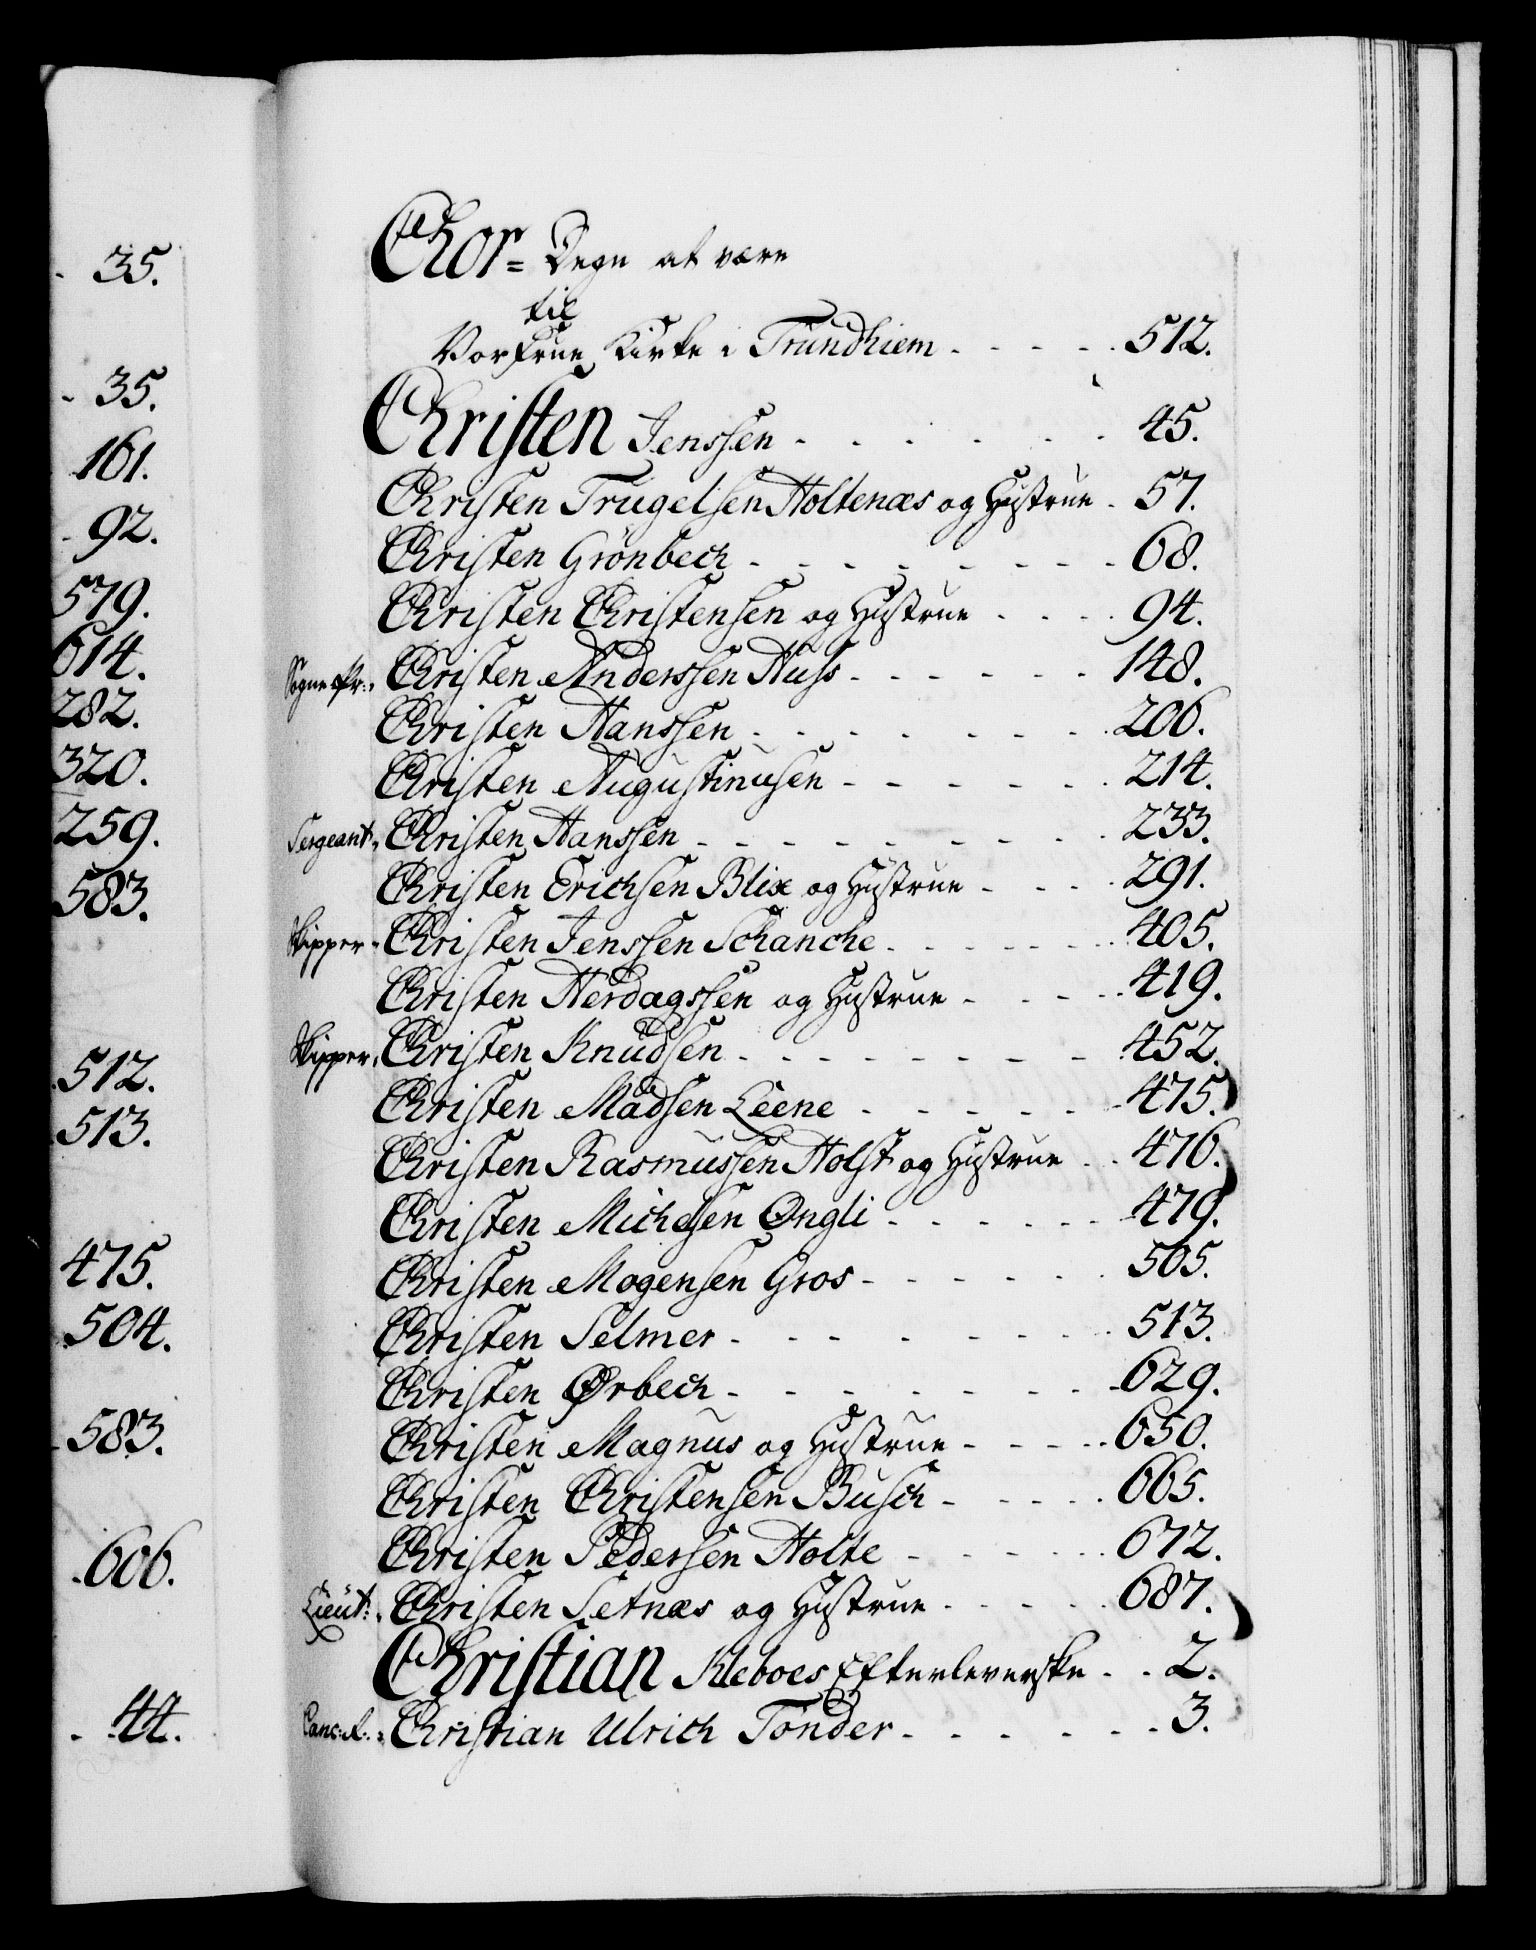 35.
35.
161.
92.
579.
614.
282.
320.
259.
583.
512.
513.
475.
504.
583.
606.
44.
Chor= Degn at være
til
Vor frue Kirke i Trundhiem - - - - - 512.
Christen Jenssen - - - - - - 45.
Christen Trugelsen Holtenæs og Hustrue - 57.
Christen Grönbech - - - - - - - - 68.
Christen Christensen og Hustrue - - - - 94.
Sogne Pr: Christen Anderssen Huss - - - - - - 148.
Christen Hanssen - - - - - - - 206.
Christen Augustinusen - - - - - - 214.
Sergeant, Christen Hanssen - - - - - - - - 233.
Christen Erichsen Blix og Hustrue - - - - 291.
Skipper - Christen Jenssen Schanche - - - - - - 405.
Christen Herdagssen og Hustrue - - - - 419.
Skipper, Christen Knudsen - - - - - - - - 452.
Christen Madsen Leene - - - - - - 475.
Christen Rasmussen Holst og Hustrue - - 476.
Christen Michelsen Ongli - - - - - - 479.
Christen Mogensen Gros - - - - - - 505.
Christen Selmer - - - - - - - 513.
Christen Ørbech - - - - - - - - 629.
Christen Magnus og Hustrue - - - - - 650.
Christen Christensen Busch - - - - - 665.
Christen Pedersen Holte - - - - - 672.
Lieut: Christen Setnæs og Hustrue - - - - - 687.
Christian Kleboes Efterleverske - - 2.
Canc: R: = Christian Ulrich Tönder - - - - - - 3.